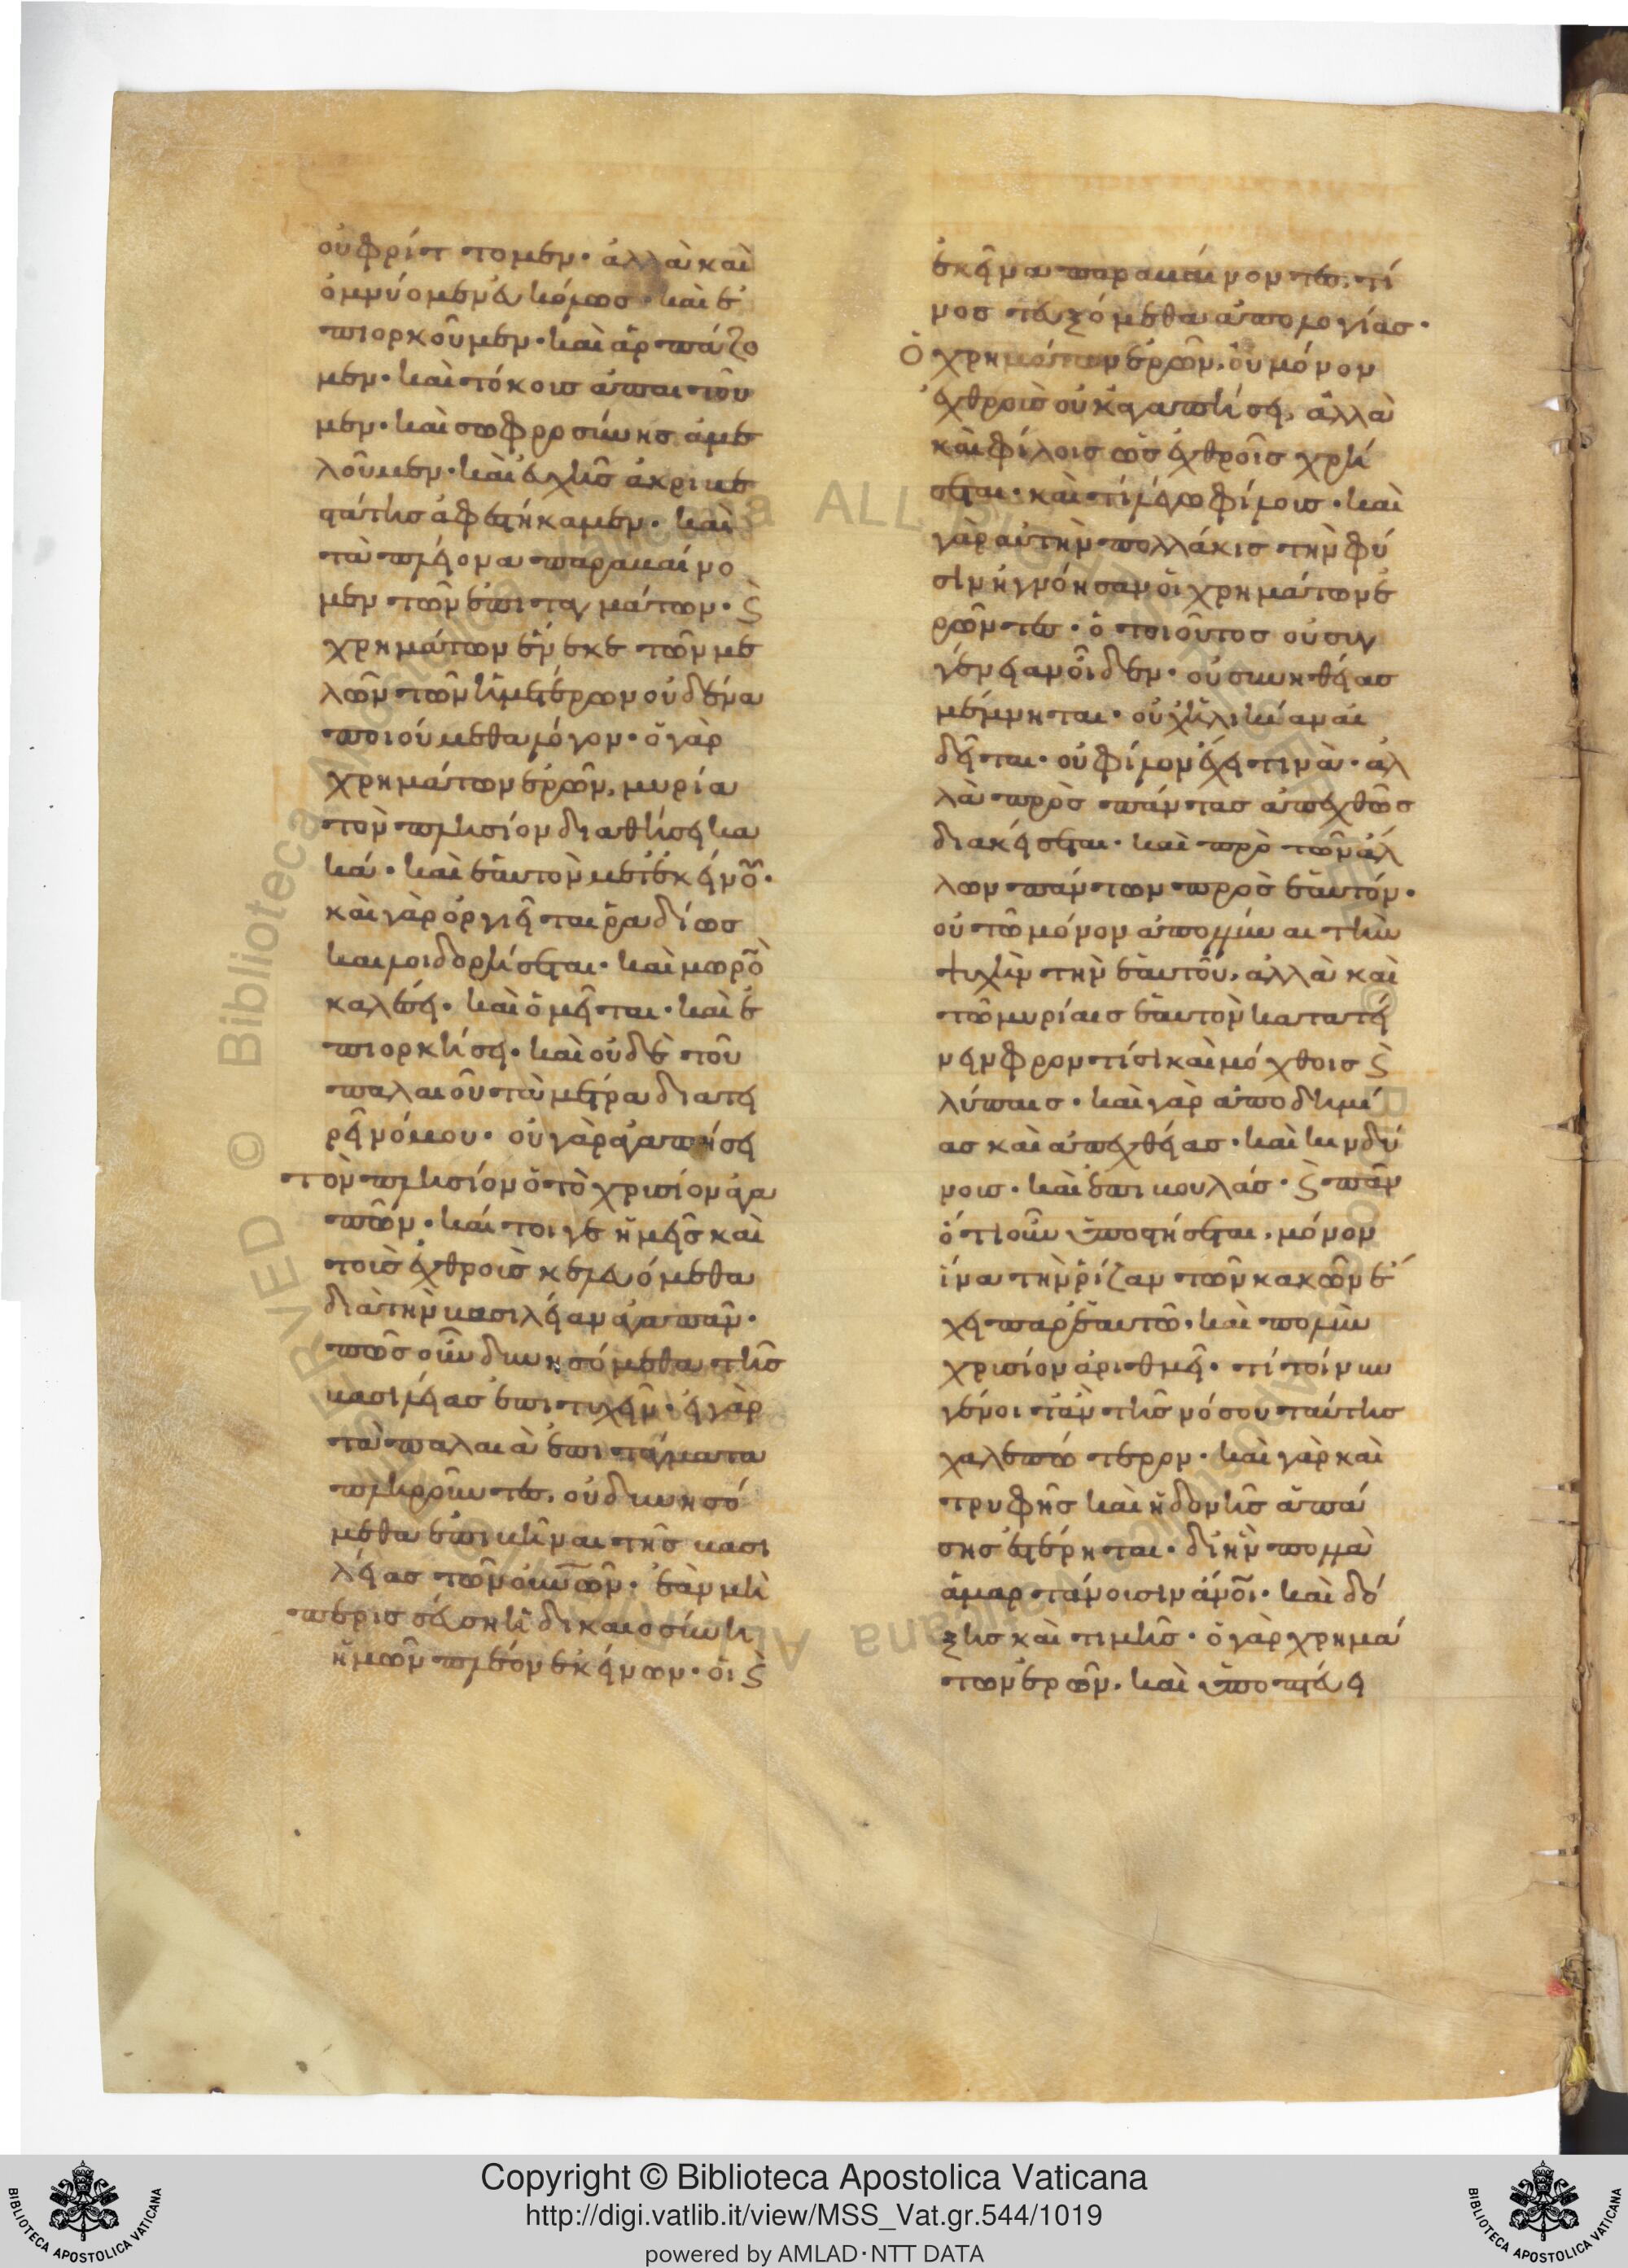 οὐ φρίττομεν· ἀλλὰ καὶ
ὀμνύομεν εὐκόλως· καὶ ἐ
πιορκοῦμεν· καὶ ἁρπάζο
μεν· καὶ τόκους ἀπαιτοῦ
μεν· καὶ σωφροσύνης ἀμε
λοῦμεν· καὶ εὐχῆς ἀκριβε
στάτης ἀφεστήκαμεν· καὶ
τὰ πλείονα παραβαίνο
μεν τῶν ἐπιταγμάτων· ϛ
χρημάτων ἕνεκε τῶν με
λῶν τῶν ἡμετέρων οὐδένα
ποιούμεθα λόγον· ὁ γὰρ
χρημάτων ἐρῶν, μυρία
τὸν πλησίον διαθήσει κα
κά· καὶ ἑαυτὸν μετ' ἐκείνου·
καὶ γὰρ ὀργιεῖται ῥαδίως
καὶ λοιδορήσεται· καὶ μωρὸ
καλέσει· καὶ ὀμεῖται· καὶ ἐ
πιορκήσει· καὶ οὐδὲ τοῦ
παλαιοῦ τὰ μέτρα διατη
ρεῖ νόμου· οὐ γὰρ ἀγαπήσει
τὸν πλησίον ὁ τὸ χρυσίον ἀγα
πῶν· καί τοι γε ἡμεῖς καὶ
τοὺς ἐχθροὺς κελευόμεθα
διὰ τὴν βασιλείαν ἀγαπᾶν·
πῶς οὖν δυνησόμεθα τῆς
βασιλείας ἐπιτυχεῖν· εἰ γὰρ
τὰ παλαιὰ ἐπιτάγματα
πληροῦντες, οὐ δυνησό
μεθα ἐπιβῆναι τῆς βασι
λείας τῶν οὐνῶν· ἐὰν μὴ
περισσεύσῃ ἡ δικαιοσύνη
ἡμῶν πλέον ἐκείνων· οἱ ϛ
ἐκεῖνα παραβαίνοντες, τί
νος τευξόμεθα ἀπολογίας·
Ὁ χρημάτων ἐρῶν, οὐ μόνον
ἐχθροὺς οὐκ ἀγαπήσει, ἀλλὰ
καὶ φίλοις ὡς ἐχθροῖς χρή
σεται· καὶ τί λέγω φίλοις· καὶ
γὰρ αὐτὴν πολλάκις τὴν φύ
σιν ἠγνόησαν οἱ χρημάτων ἐ
ρῶντες· ὁ τοιοῦτος οὐ συγ
γένειαν οἶδεν· οὐ συνηθείας
μέμνηται· οὐχ ἡλικίαν αἰ
δεῖται· οὐ φίλον ἔχει τινὰ· ἀλ
λὰ πρὸς πάντας ἀπεχθῶς
διακείσεται· καὶ πρὸ τῶν ἄλ
λων πάντων πρὸς ἑαυτόν·
οὐ τῶ μόνον ἀπολλύναι τὴν
ψυχὴν τὴν ἑαυτοῦ, ἀλλὰ καὶ
τῶ μυρίαις ἑαυτὸν κατατεί
νειν φροντίσι καὶ μόχθοις ϛ
λύπαις· καὶ γὰρ ἀποδημί
ας καὶ ἀπεχθείας· καὶ κινδύ
νους· καὶ ἐπιβουλάς· ϛ πᾶν
ὁτιοῦν ὑποστήσεται, μόνον
ἵνα τὴν ῥίζαν τῶν κακῶν ἔ
χει παρ' ἑαυτῶ· καὶ πολὺν
χρυσίον ἀριθμεῖ· τί τοίνυν
γένοιτ' ἂν τῆς νόσου ταύτης
χαλεπώτερον· καὶ γὰρ καὶ
τρυφῆς καὶ ἡδονῆς ἁπά
σης ἐστέρηται· δι' ἣν πολλὰ
ἁμαρτάνουσιν ἄνοι· καὶ δό
ξης καὶ τιμῆς· ὁ γὰρ χρημά
των ἐρῶν, καὶ ὑποπτεύει